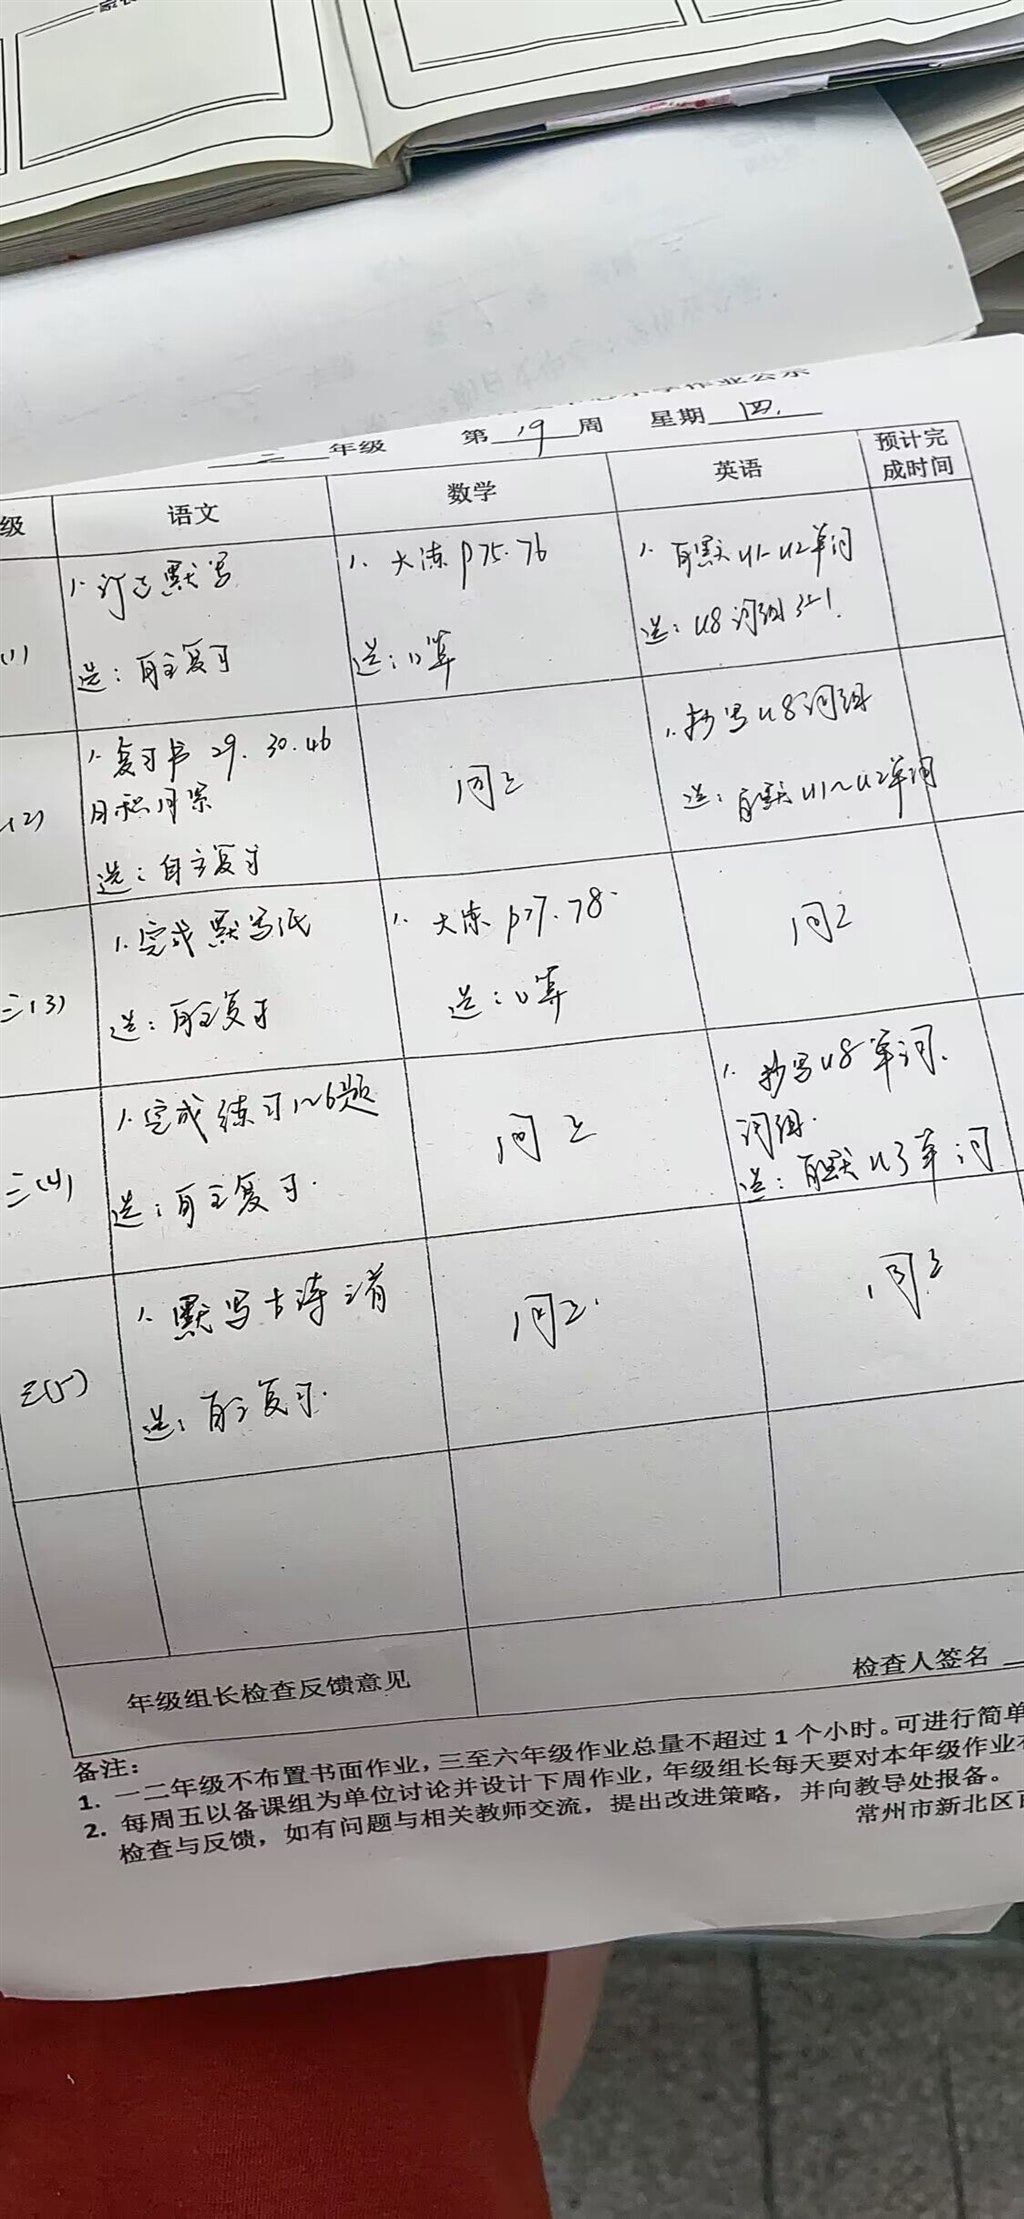 三 年级 第 19 周 星期 四.
级 语文 数学 英语 预计完成时间
(1)
1. 订正默写
选：自主复习
1. 大练 P75.76
选：口算
1. 自默U1-U2单词
选：U8词组
(2)
1. 复习书 29. 30. 46
日积月累
选：自主复习
同上
1. 抄写U8词组
选：自默U1~U2单词
三(3)
1. 完成默写纸
选：自主复习
1. 大练 P77.78.
选：口算
同上
三(4)
1. 完成练习1~6题
选：自主复习.
同上
1. 抄写U8单词.
词组.
选：自默U3单词
三(5)
1. 默写古诗三首
选：自主复习.
同上.
同上
年级组长检查反馈意见
检查人签名
备注：
1. 一二年级不布置书面作业，三至六年级作业总量不超过 1 个小时。可进行简单
2. 每周五以备课组为单位讨论并设计下周作业，年级组长每天要对本年级作业
检查与反馈，如有问题与相关教师交流，提出改进策略，并向教导处报备。
常州市新北区